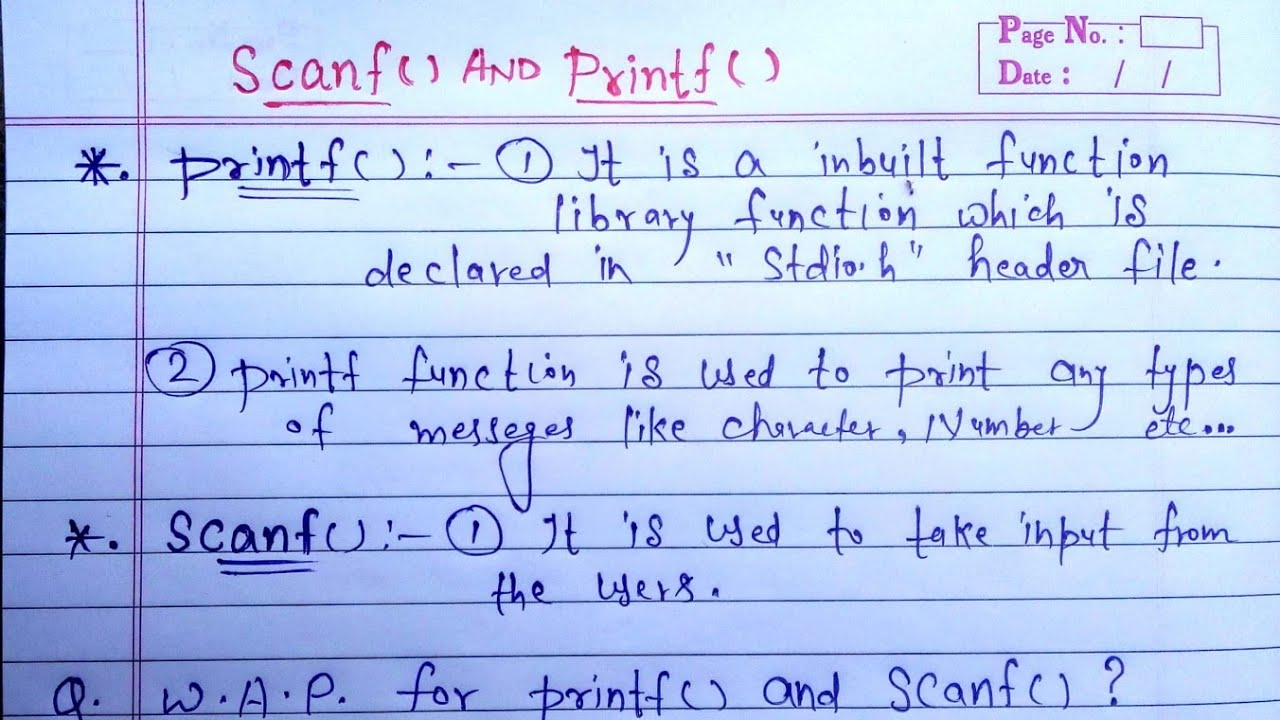 Scanf() AND Printf()
Page No. :
Date : / /
*. printf() :- ① It is a inbuilt function
library function which is
declared in "Stdio.h" header file.
② printf function is used to print any types
of messeges like character, Number etc...
*. Scanf() :- ① It is used to take input from
the users.
Q. W.A.P. for printf() and Scanf() ?